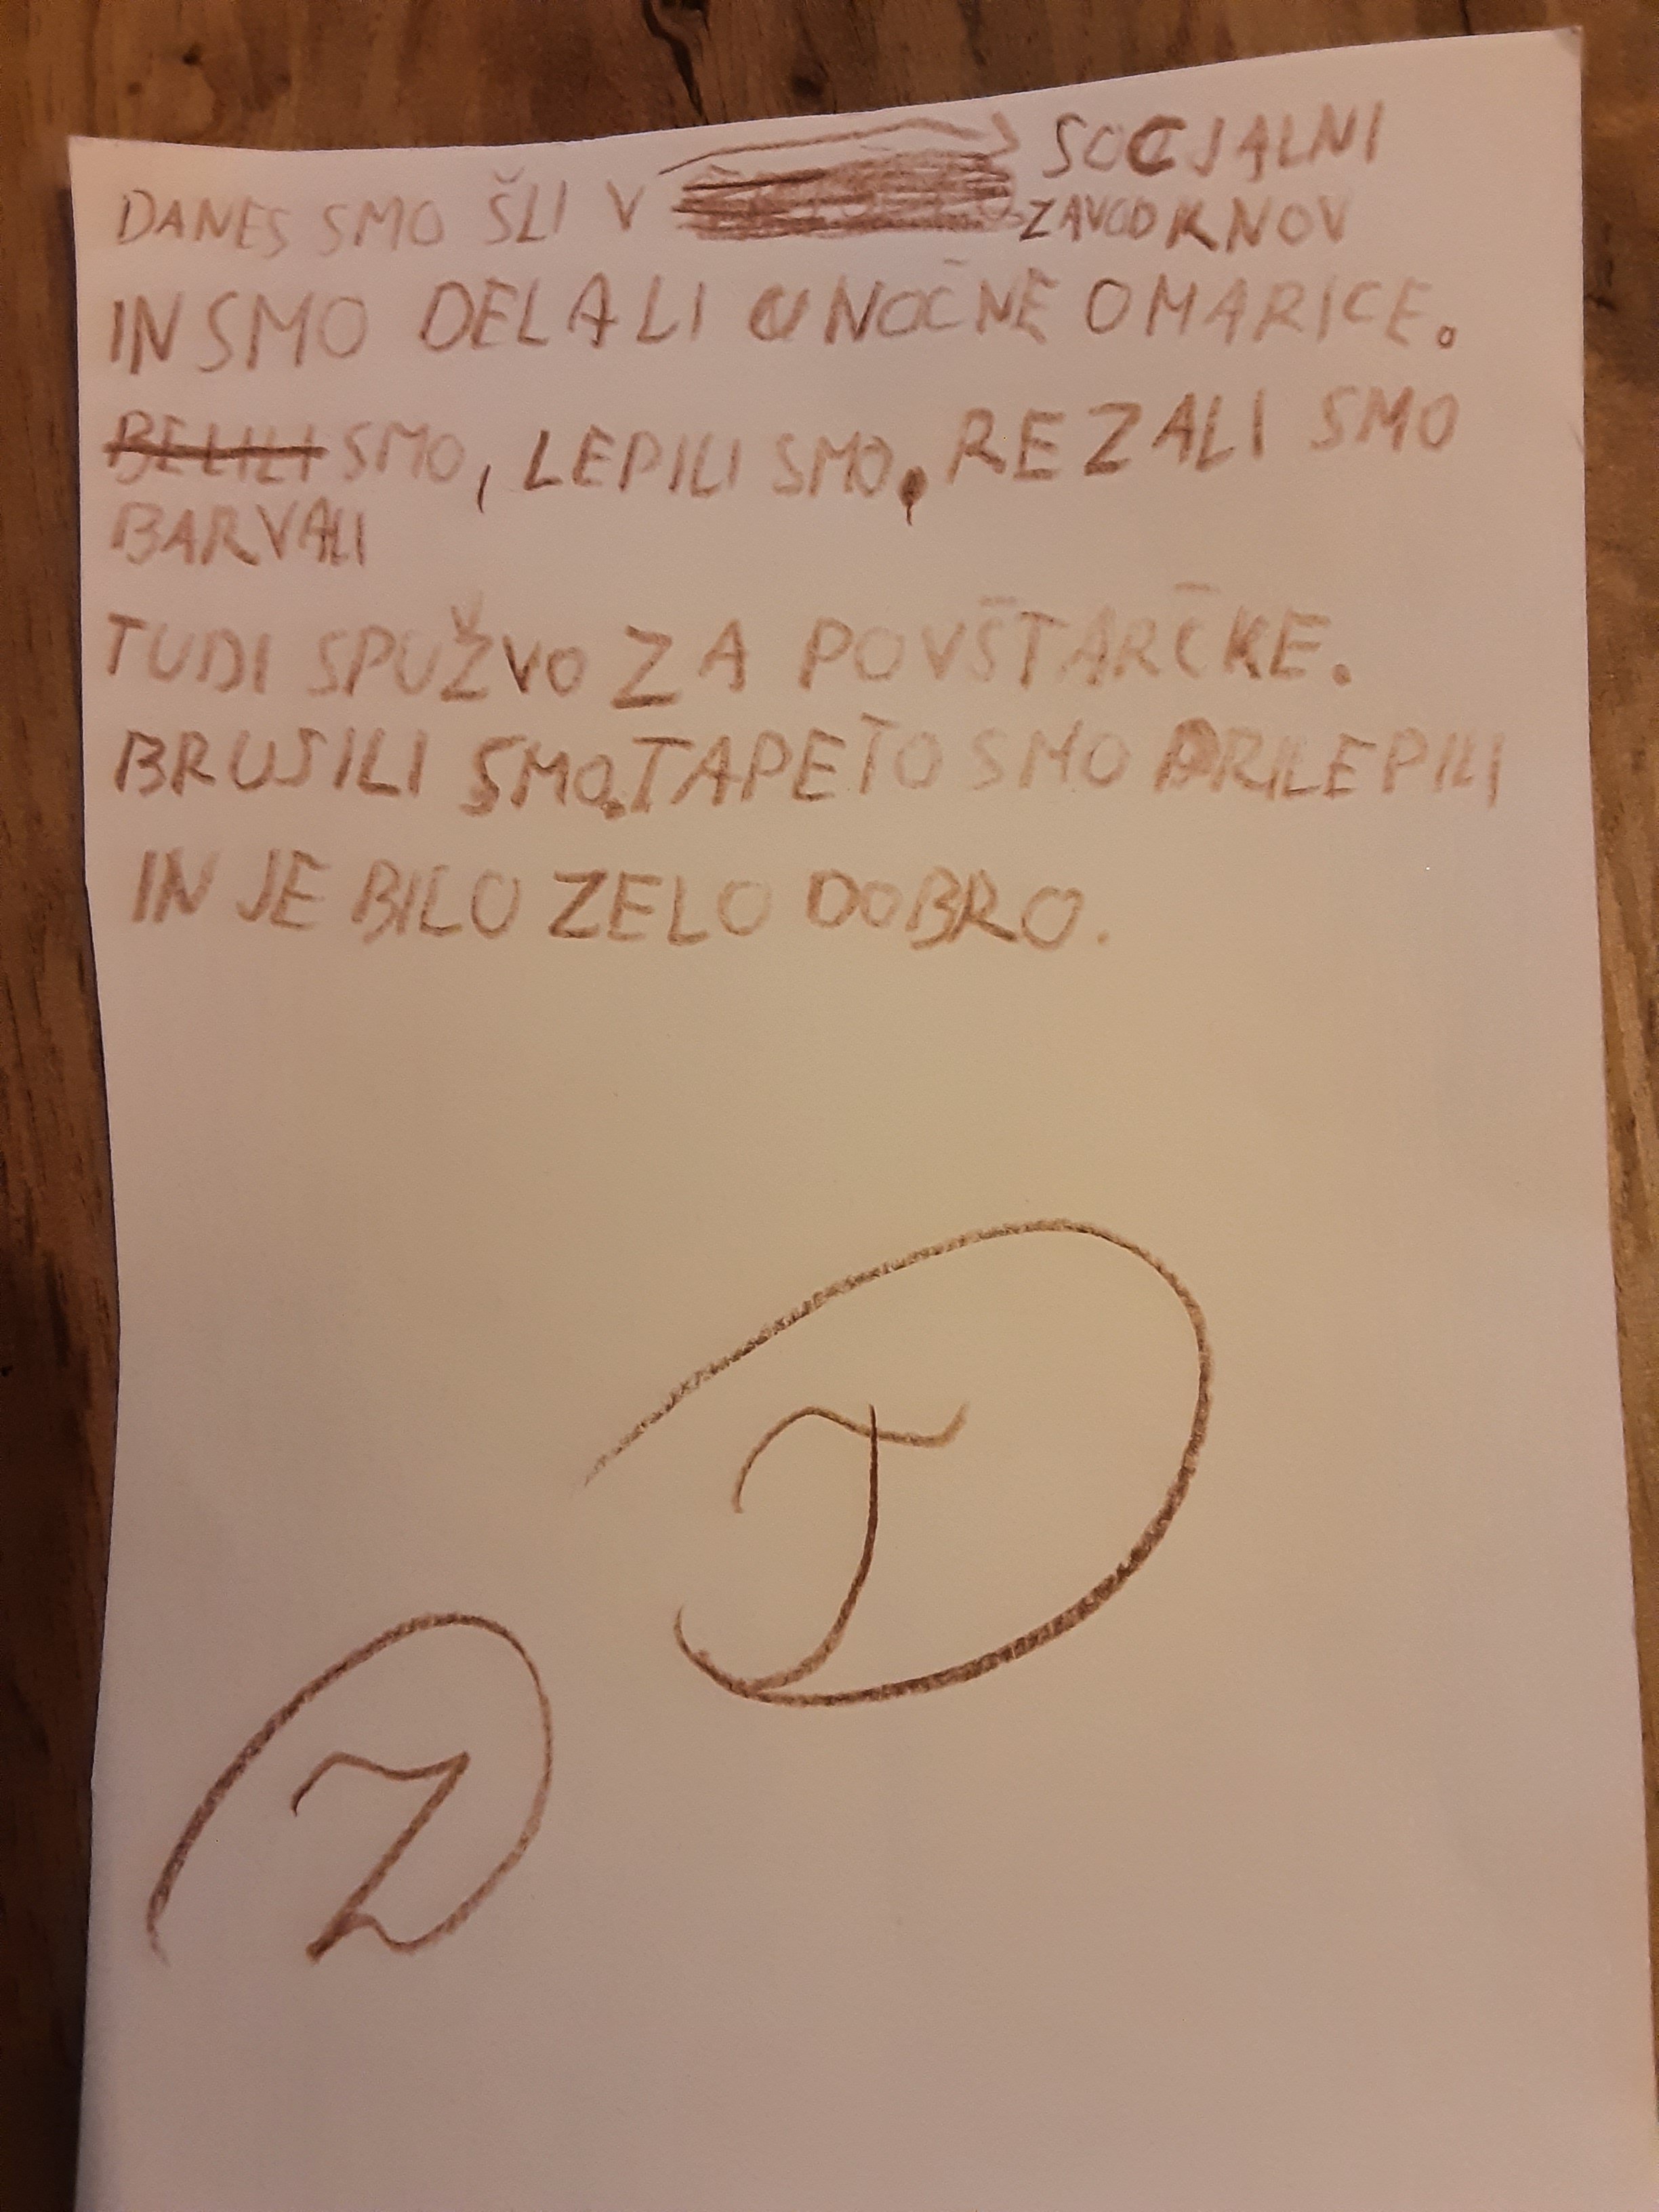 SOCJALNI
DANES SMO ŠLI V ZAVOD KNOV
IN SMO DELALI NOČNE OMARICE.
BELILI SMO, LEPILI SMO, REZALI SMO
BARVALI
TUDI SPUŽVO ZA POVŠTARČKE.
BRUSILI SMO. TAPETO SMO PRILEPILI
IN JE BILO ZELO DOBRO.
T
Z